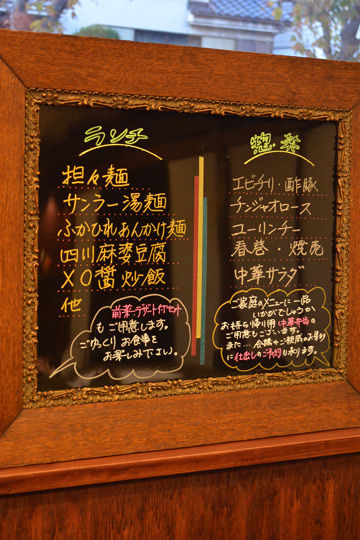 ランチ
担々麺
サンラー湯麺
ふかひれあんかけ麺
四川麻婆豆腐
XO醬炒飯
他
前菜・デザート付セット
もご用意します。
ごゆっくりお食事を
お楽しみ下さい。
惣菜
エビチリ・酢豚
チンジャオロース
ユーリンチー
春巻・焼売
中華サラダ
ご家庭のメニューに一品
いかがでしょうか
お持ち帰り用中華弁当も
ご用意もございます。
また… 会議やご親戚のお集り
に仕出しのご予約も承ります。